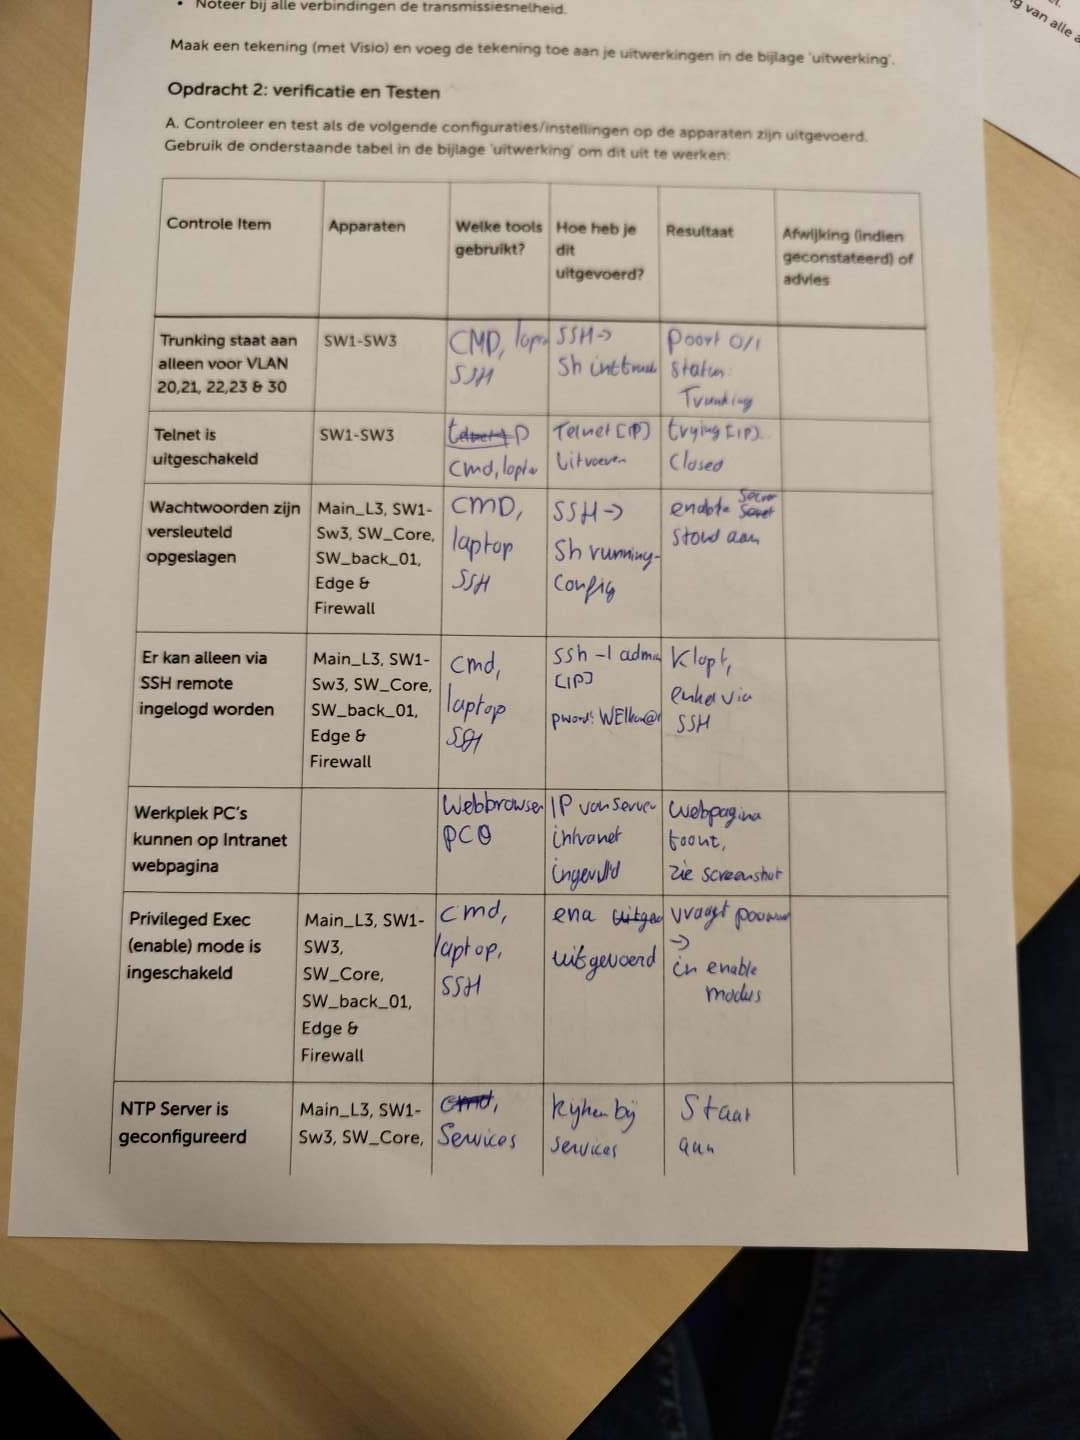 • Noteer bij alle verbindingen de transmissiesnelheid.
g van alle a
Maak een tekening (met Visio) en voeg de tekening toe aan je uitwerkingen in de bijlage 'uitwerking'.
Opdracht 2: verificatie en Testen
A. Controleer en test als de volgende configuraties/instellingen op de apparaten zijn uitgevoerd.
Gebruik de onderstaande tabel in de bijlage 'uitwerking' om dit uit te werken:
Controle Item
Apparaten
Welke tools
gebruikt?
Hoe heb je
dit
uitgevoerd?
Resultaat
Afwijking (indien
geconstateerd) of
advies
Trunking staat aan
alleen voor VLAN
20,21, 22,23 & 30
SW1-SW3
CMD,
SSH
SSH->
Sh int trunk
Poort 0/1
Status:
Trunking
Telnet is
uitgeschakeld
SW1-SW3
cmd, laptop
Telnet [IP]
Uitvoeren
trying [IP]..
Closed
Wachtwoorden zijn
versleuteld
opgeslagen
Main_L3, SW1-
Sw3, SW_Core,
SW_back_01,
Edge &
Firewall
CMD,
laptop
SSH
SSH->
Sh running-
Config
enable
stond aan
Er kan alleen via
SSH remote
ingelogd worden
Main_L3, SW1-
Sw3, SW_Core,
SW_back_01,
Edge &
Firewall
cmd,
laptop
SSH
ssh -l admin
[IP]
Klopt,
enkel via
SSH
Werkplek PC's
kunnen op Intranet
webpagina
Webbrowser
PC0
IP van server
intranet
ingevuld
Webpagina
toont,
zie screenshot
Privileged Exec
(enable) mode is
ingeschakeld
Main_L3, SW1-
SW3,
SW_Core,
SW_back_01,
Edge &
Firewall
cmd,
laptop,
SSH
ena
uitgevoerd
vraagt
->
in enable
modus
NTP Server is
geconfigureerd
Main_L3, SW1-
Sw3, SW_Core,
cmd,
Services
kijken bij
services
Staat
aan